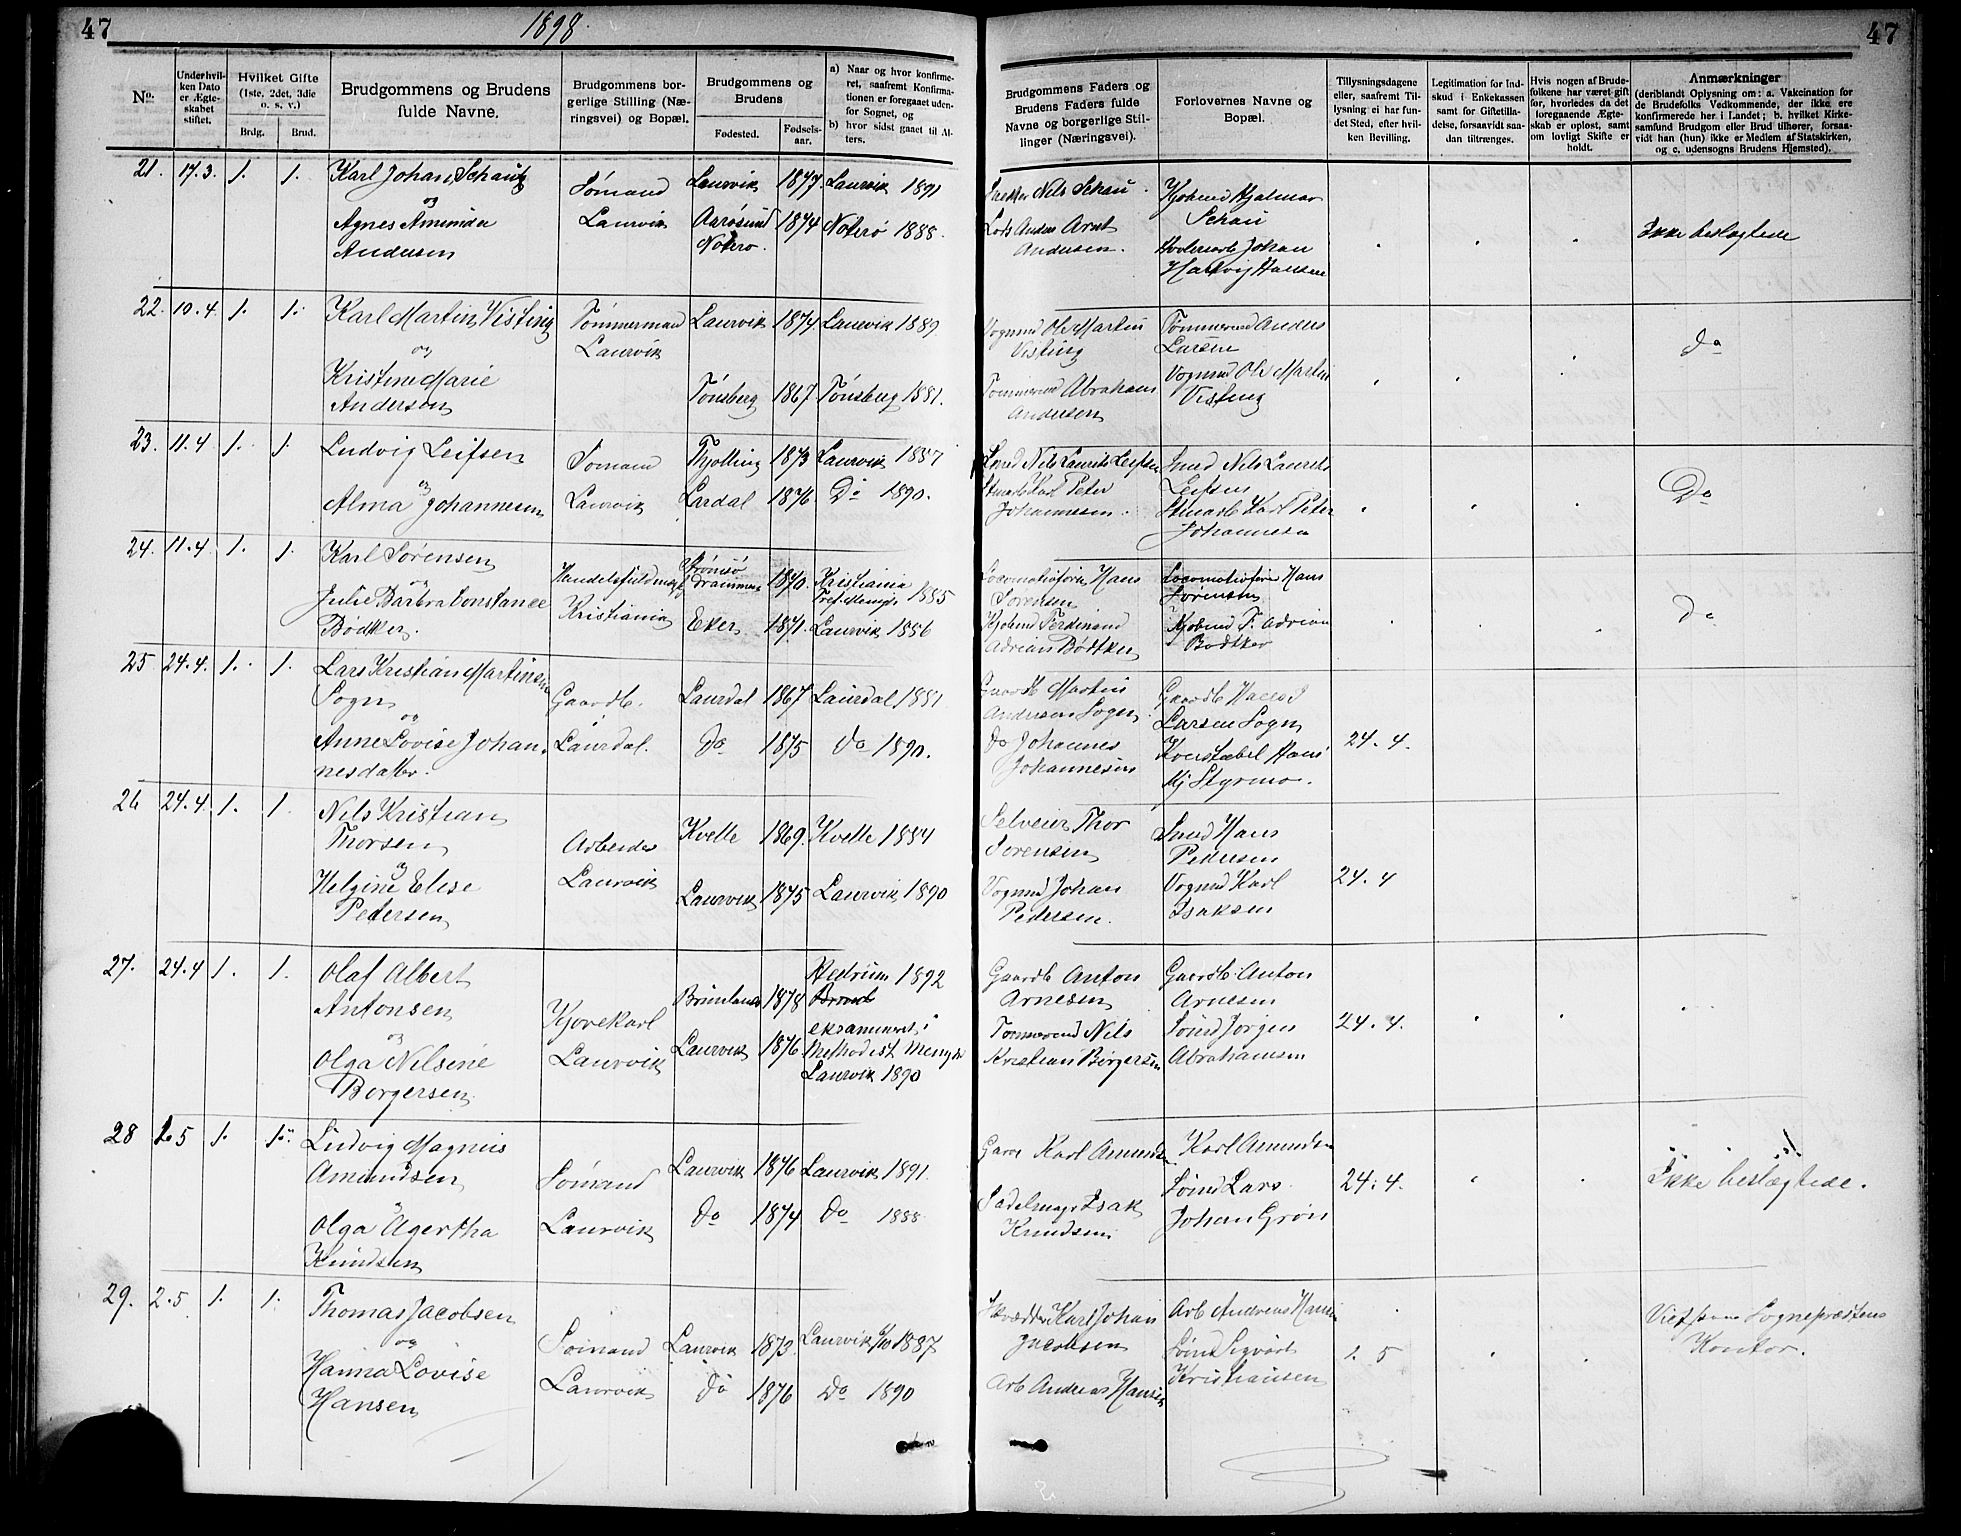 47
1898.
47
No.
Under hvil-
ken Dato
er Ægte-
skabet
stiftet.
Hvilket Gifte
(1ste, 2det, 3die
o. s. v.)
Brdg.
Brud.
Brudgommens og Brudens
fulde Navne.
Brudgommens bor-
gerlige Stilling (Næ-
ringsvei) og Bopæl.
Brudgommens og
Brudens
Fødested.
Fødsels-
aar.
a) Naar og hvor konfirme-
ret, saafremt Konfirma-
tionen er foregaaet uden-
for Sognet, og
b) hvor sidst gaaet til Al-
ters.
Brudgommens Faders og
Brudens Faders fulde
Navne og borgerlige Stil-
linger (Næringsvei).
Forlovernes Navne og
Bopæl.
Tillysningsdagene
eller, saafremt Til-
lysning ei har fun-
det Sted, efter hvil-
ken Bevilling.
Legitimation for Ind-
skud i Enkekassen
samt for Giftetilla-
delse, forsaavidt saa-
dan tiltrænges.
Hvis nogen af Brude-
folkene har været gift
før, hvorledes da det
foregaaende Ægte-
skab er opløst, samt
om lovligt Skifte er
holdt.
Anmærkninger
(deriblandt Oplysning om: a. Vakcination for
de Brudefolks Vedkommende, der ikke ere
konfirmerede her i Landet; b. hvilket Kirke-
samfund Brudgom eller Brud tilhører, forsaa-
vidt han (hun) ikke er Medlem af Statskirken,
og c. udensogns Brudens Hjemsted).
21. 17.3. 1. 1. Karl Johan Schau Sømand Laurvik 1877. Laurvik 1891 Nils Schau. Hjalmar
og
Schau
Agnes Amunda Laurvik Aarøsund 1874 Nøterø 1888. Lods Anders Arnt Johan Ikke beslægtede
Andersen Nøterø. Andersen. Hartvig Hansen
22. 10.4. 1. 1. Karl Martin Visting Tømmermand Laurvik 1874 Laurvik 1889 Vognmd Ole Martin Tømmermd Anders
og Laurvik Visting Larsen do
Kristine Marie Tønsberg 1867. Tønsberg 1881. Tømmermd Abraham Vognmd Ole Martin
Anderson Andersen Visting
23. 11.4 1. 1. Ludvig Leifsen Sømand Thjølling 1873 Laurvik 1887 Smed Nils Laurits Leifsen Smed Nils Laurits
og Leifsen
Alma Johannesen Laurvik Lardal 1876 Do 1890. Karl Peter Karl Peter Do
Johannesen. Johannesen
24. 11.4. 1. 1. Karl Sørensen Handelsfuldmægt Strømsø 1870. Kristiania Locomotivfører Hans Locomotivfører Hans
og Drammen 1885 Sørensen Sørensen
Julie Barbra Constance Kristiania Eker 1871. Laurvik 1886 Kjøbmd Ferdinand Kjøbmd F. Adrian do
Bødtker. Adrian Bødtker Bødtker
25 24.4. 1. 1. Lars Kristian Martinsen Gaardb. Laurdal 1867 Laurdal 1881 Gaardb Martin Gaardb
Sogn Andersen Sogn Larsen Sogn
og
Anne Lovise Johan- Laurdal. do 1875 do 1890. do Johannes Konstabel Hans 24.4.
nesdatter. Johannesen Styrmo.
26 24.4. 1. 1. Nils Kristian Arbeider Kvelle 1869. Kvelle 1884 Selveier Thor Smed Hans
Thorsen Sørensen Pedersen
og
Helgine Elise Laurvik Laurvik 1875 Laurvik 1890 Vognmd Johan Vognmd Karl 24.4
Pedersen Pedersen. Isaksen
27. 24.4 1. 1. Olaf Albert Kjørekarl Brunlanes 1878 Hedrum 1892 Gaardb Anton Gaardb. Anton
Antonsen Arnesen Arnesen
og eksamineret i
Olga Nilsine Laurvik Laurvik 1876 Methodist Tømmermd Nils Sømd Jørgen 24.4.
Borgersen Laurvik 1890 Kristian Børgersen Abrahamsen
28 2.5 1. 1. Ludvig Magnus Sømand Laurvik 1876 Laurvik 1891. Karl Amundsen Karl Amundsen
Amundsen
Olga Agertha Laurvik do 1874 do 1888 Sadelmager Isak Sømd Lars 24.4. Ikke beslægtede.
Knudsen Knudsen Johan Grøn
29. 2.5 1. 1. Thomas Jacobsen Sømand Laurvik 1873. Laurvik 1887 Skrædder Karl Johan Arb Andreas Hansen Viet paa Sognepræstens
og Jacobsen Kontor.
Hanna Lovise Laurvik do 1876 Do 1890 Arb Andreas Hansen Sømd Sigvart 1.5
Hansen Kristiansen